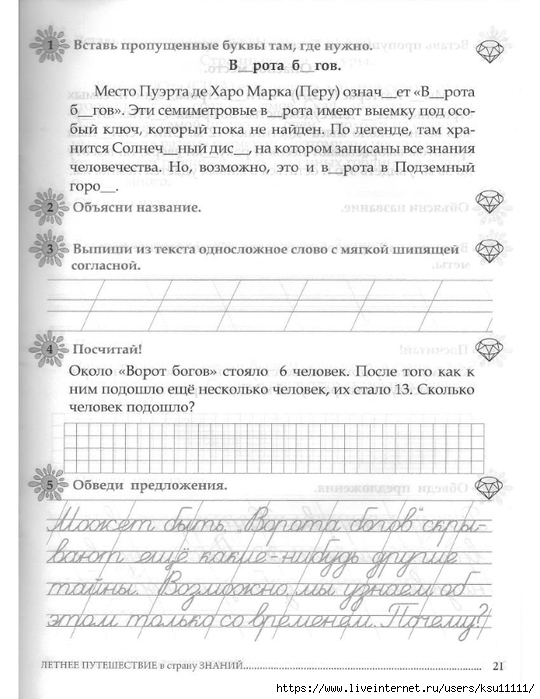 1 Вставь пропущенные буквы там, где нужно.
В__рота б__гов.
Место Пуэрта де Харо Марка (Перу) означ__ет «В__рота
б__гов». Эти семиметровые в__рота имеют выемку под осо-
бый ключ, который пока не найден. По легенде, там хра-
нится Солнеч__ный дис__, на котором записаны все знания
человечества. Но, возможно, это и в__рота в Подземный
горо__.
2 Объясни название.
3 Выпиши из текста односложное слово с мягкой шипящей
согласной.
4 Посчитай!
Около «Ворот богов» стояло 6 человек. После того как к
ним подошло ещё несколько человек, их стало 13. Сколько
человек подошло?
5 Обведи предложения.
Может быть, „Ворота богов“ скры-
вают ещё какие-нибудь другие
тайны. Возможно, мы узнаем об
этом только со временем. Почему?
ЛЕТНЕЕ ПУТЕШЕСТВИЕ в страну ЗНАНИЙ 21
https://www.liveinternet.ru/users/ksu11111/